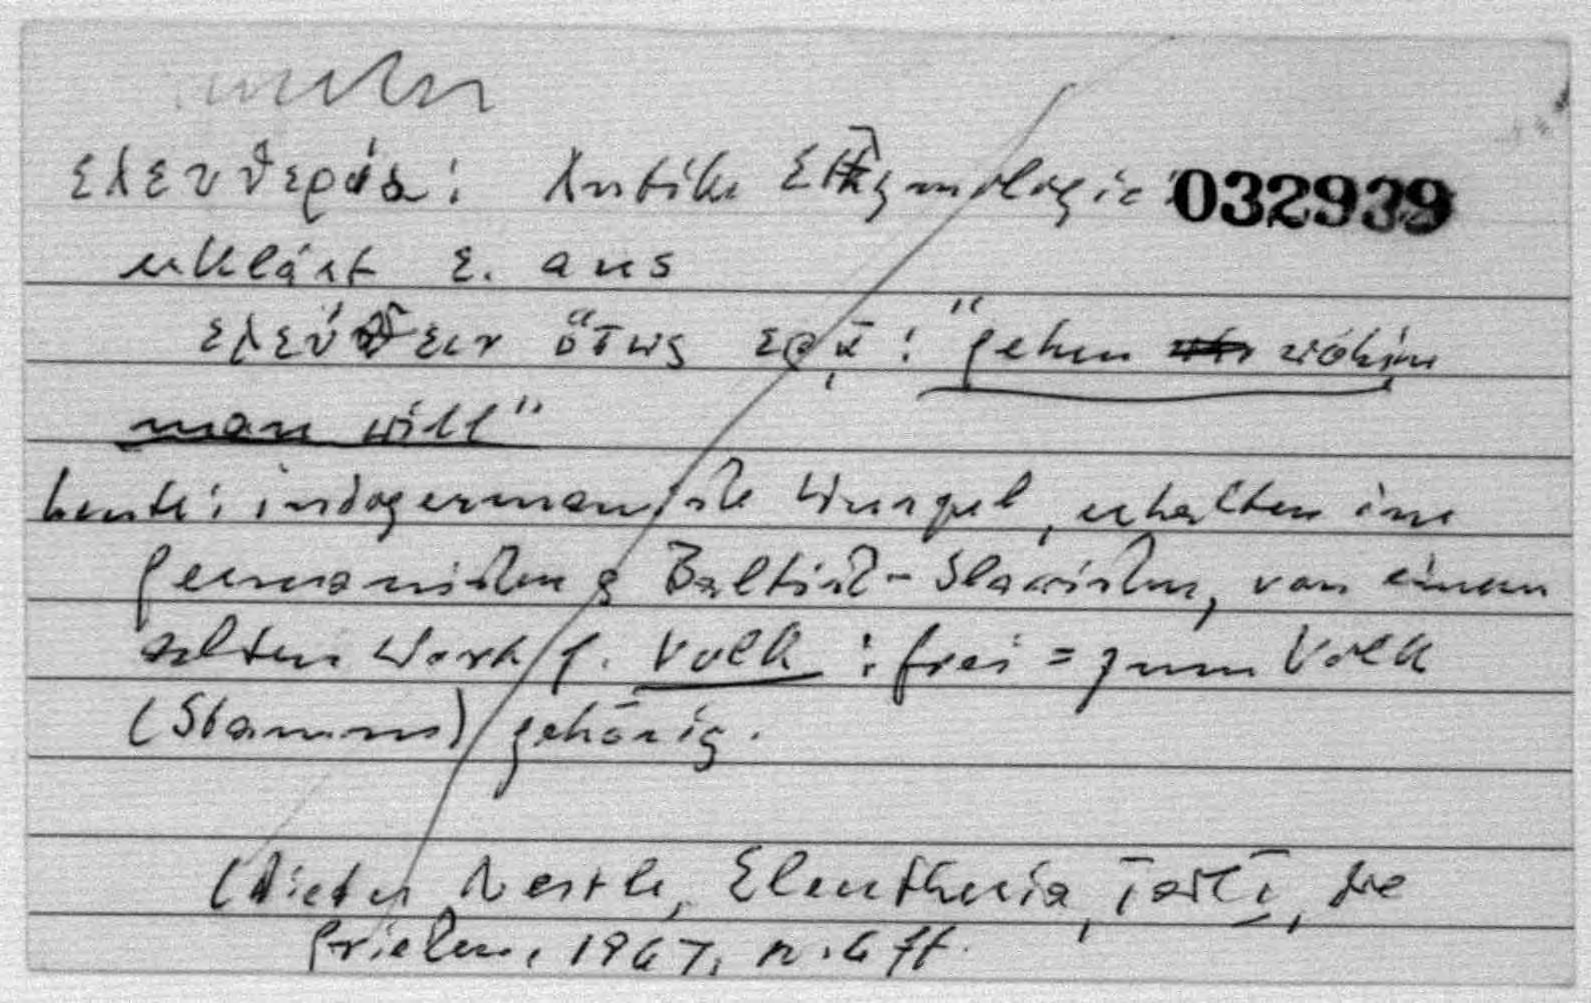 ελευθερία: Antike Etymologie 032939
erklärt ε. aus
ελεύθειν ὅπως ερᾷ: "gehen wohin
man will"
heute: indogermanische Wurzel, erhalten im
Germanischen & Baltisch-Slawischen, von einem
alten Wort f. Volk: frei = zum Volk
(Stamm) gehörig.
(Dieter Nestle, Eleutheria, Teil I, Die
Griechen, 1967, p. 6 ff.